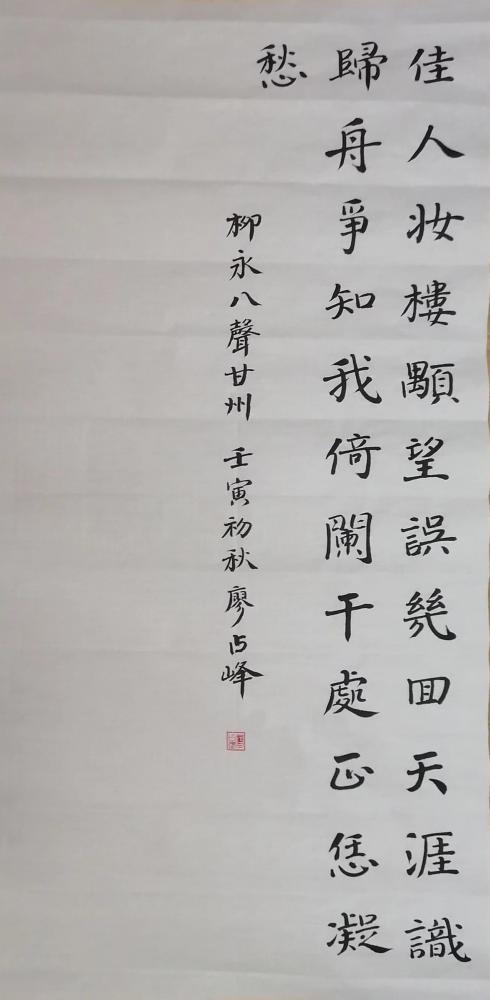 佳人妝樓顒望誤幾回天涯識
歸舟爭知我倚闌干處正恁凝
愁
柳永八聲甘州 壬寅初秋廖占峰